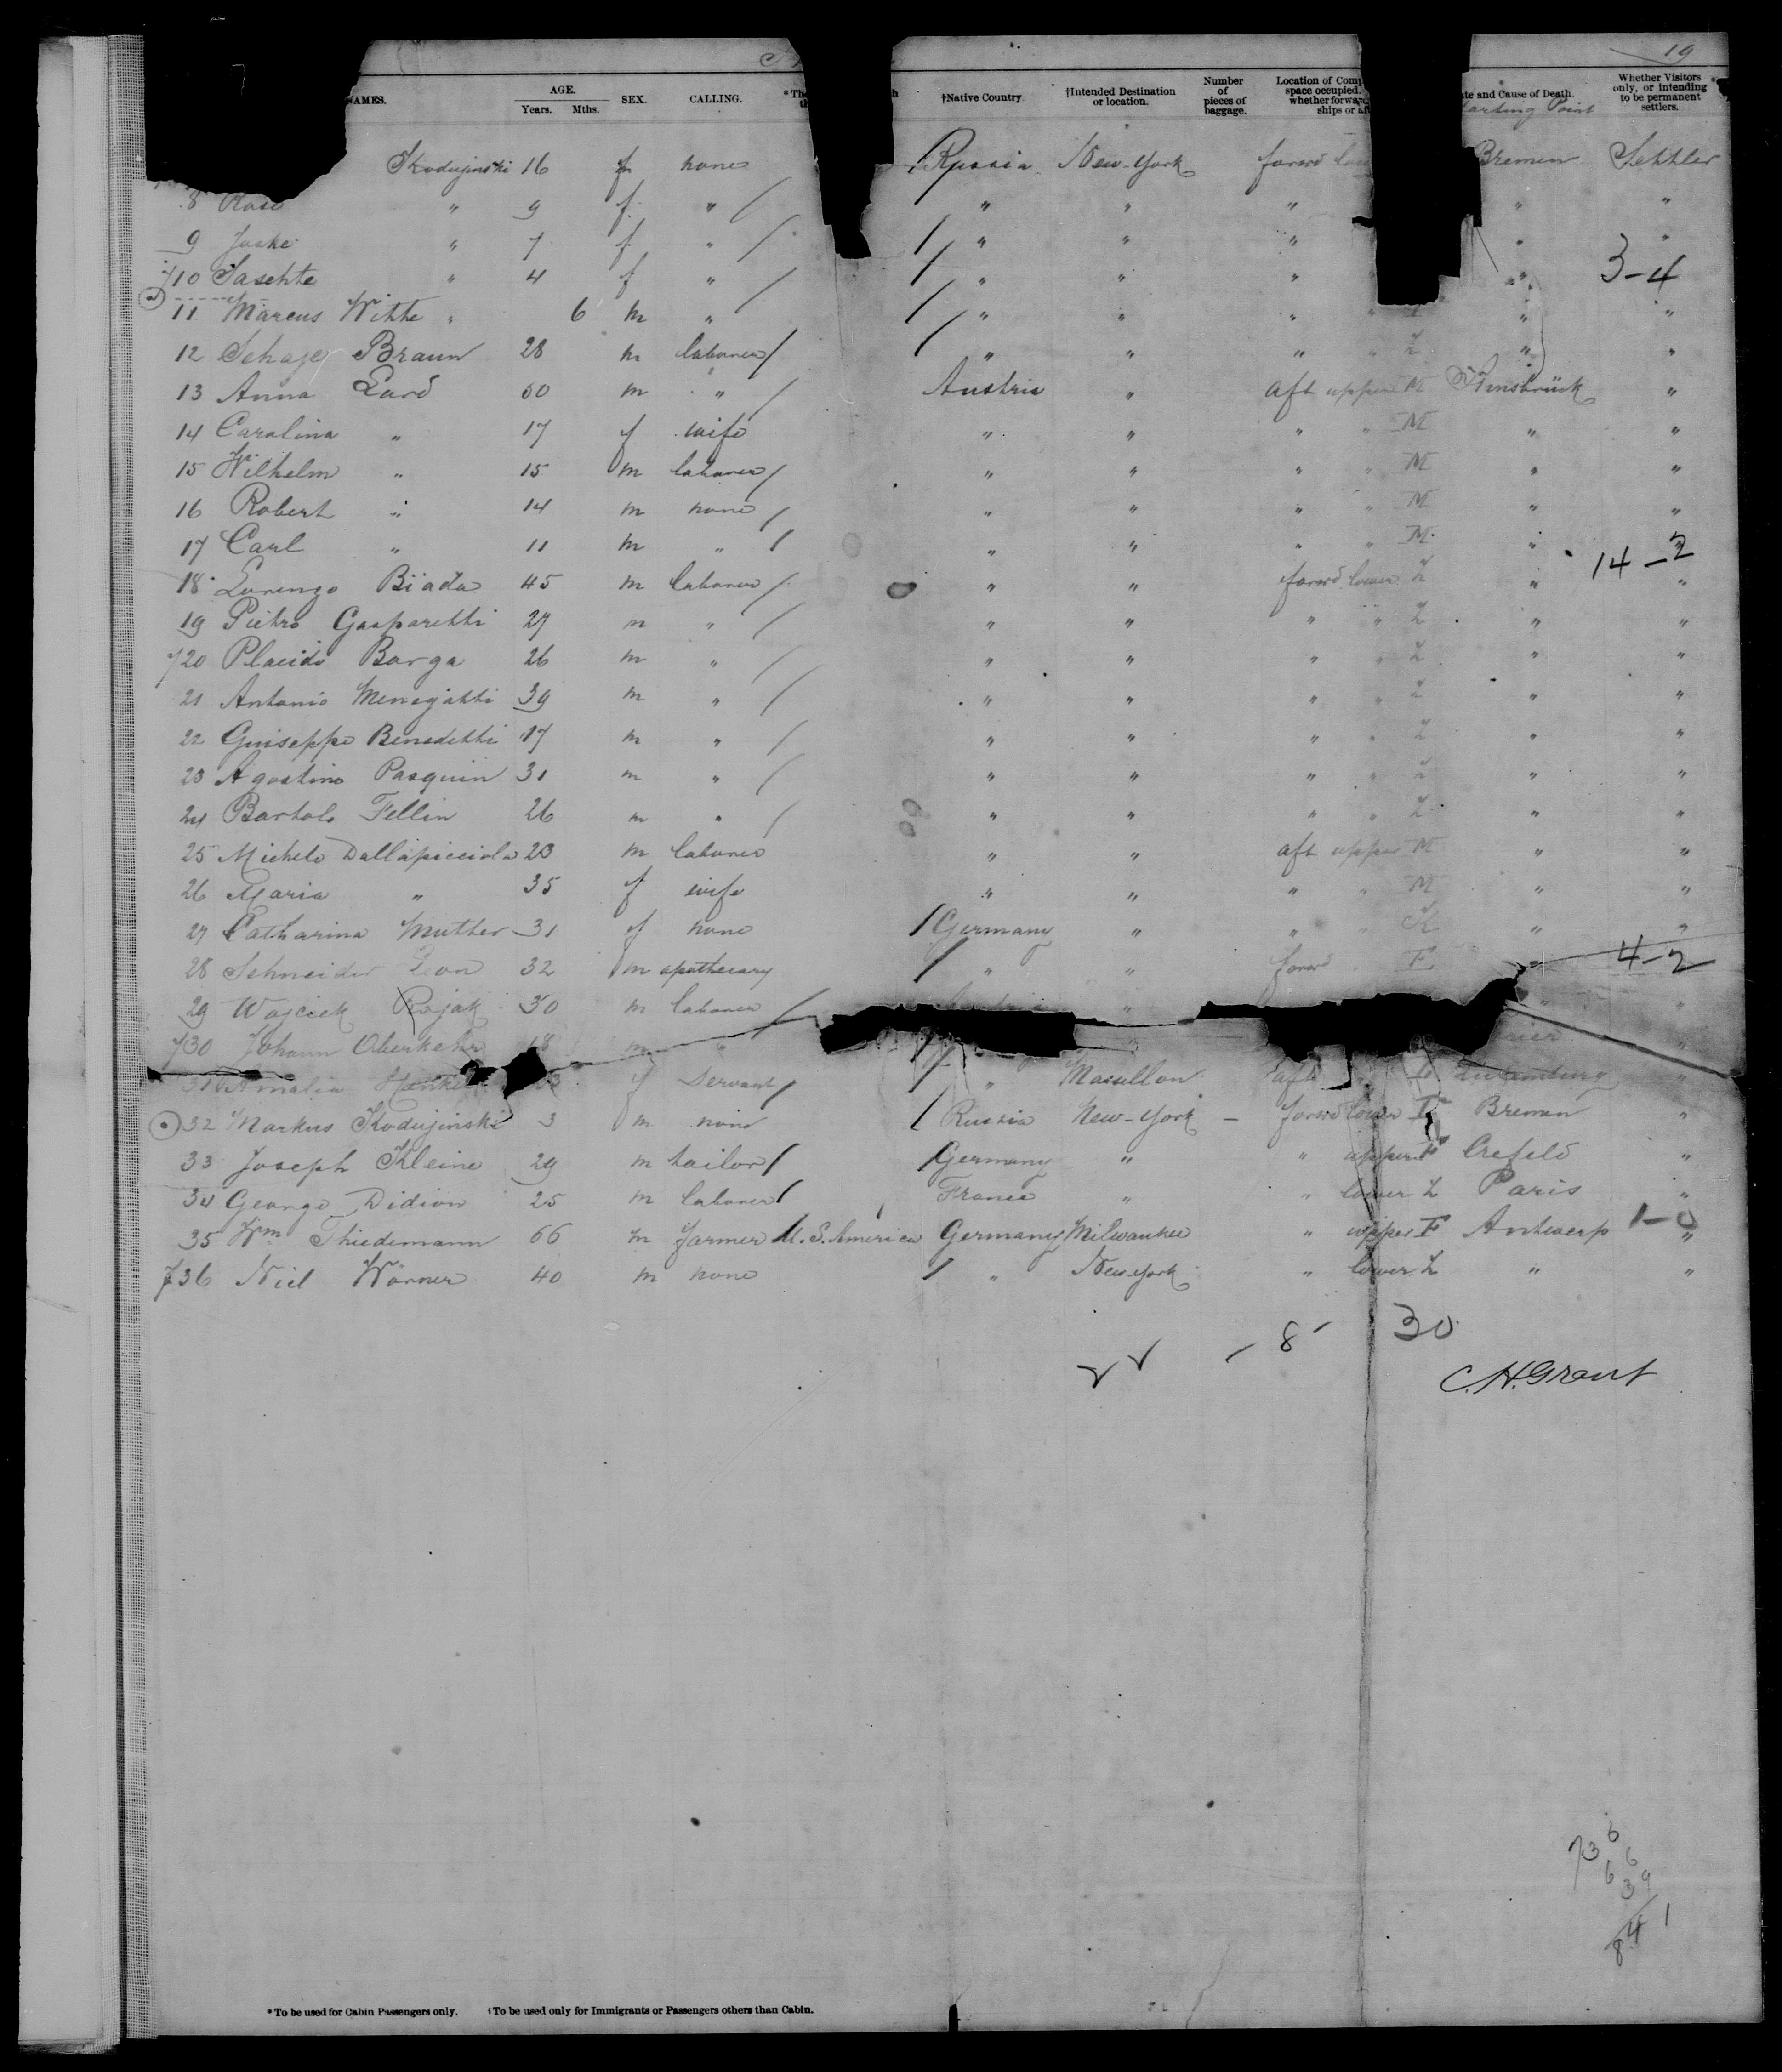 19
NAMES. AGE. Years. Mths. SEX. CALLING. †Native Country †Intended Destination or location. Number of pieces of baggage. Location of Comp space occupied. whether forward ships or aft ate and Cause of Death. Starting Point Whether Visitors only, or intending to be permanent settlers.
Skodujinski 16 f none / Russia New-York forwd Bremen Settler
8 Rose " 9 f " / " " " " "
9 Jaske " 7 f " / / " " " " "
710 " 4 f " / / " " " " 3-4
11 Marcus Witte " 6 m " / " " " " " "
12 Braun 28 m laborer / / " " " " Z " "
13 Anna Lard 50 m " / Austria " aft upper M Innsbrück "
14 Carolina " 17 f wife " " " " M " "
15 Wilhelm " 15 m laborer / " " " " M " "
16 Robert " 14 m none / " " " " M " "
17 Carl " 11 m " / " " " " M " 14-2
18 Lorenzo Biada 45 m laborer / " " forwd lower Z " "
19 Pietro Gasparetti 27 m " / " " " " Z " "
720 Placido Barga 26 m " / " " " " Z " "
21 Antonio Menegatti 39 m " / " " " " Z " "
22 Guiseppe Benedetti 17 m " / " " " " Z " "
23 Agostino Pasquin 31 m " / " " " " Z " "
24 Bartolo Fellin 26 m " / " " " " Z " "
25 Michele Dallapicciola 23 m laborer " " aft upper M " "
26 Maria " 35 f wife " " " " M " "
27 Catharina Mutter 31 f none / Germany " " " " "
28 Schneider Leon 32 m apothecary / " " forwd F 4-2
29 Wojciek Rojak 30 m laborer / " " "
730 Johann Oberkehr 18 m " "
31 Amalia f Servant / / " Massillon aft Luxemburg "
32 Markus Skodujinski 3 m none / Russia New-York - forwd lower Bremen "
33 Joseph Kleine 29 m tailor / / Germany " " upper F Crefeld "
34 George Didion 25 m laborer / France " " lower Z Paris "
35 Wm Thiedemann 66 m farmer U.S. America Germany Milwaukee " upper F Antwerp 1-0 "
736 Niel Wörner 40 m none / " New-York " lower Z " "
- 8 - 30
C. H. Grant
736
66
39
841
*To be used for Cabin Passengers only. †To be used only for Immigrants or Passengers others than Cabin.